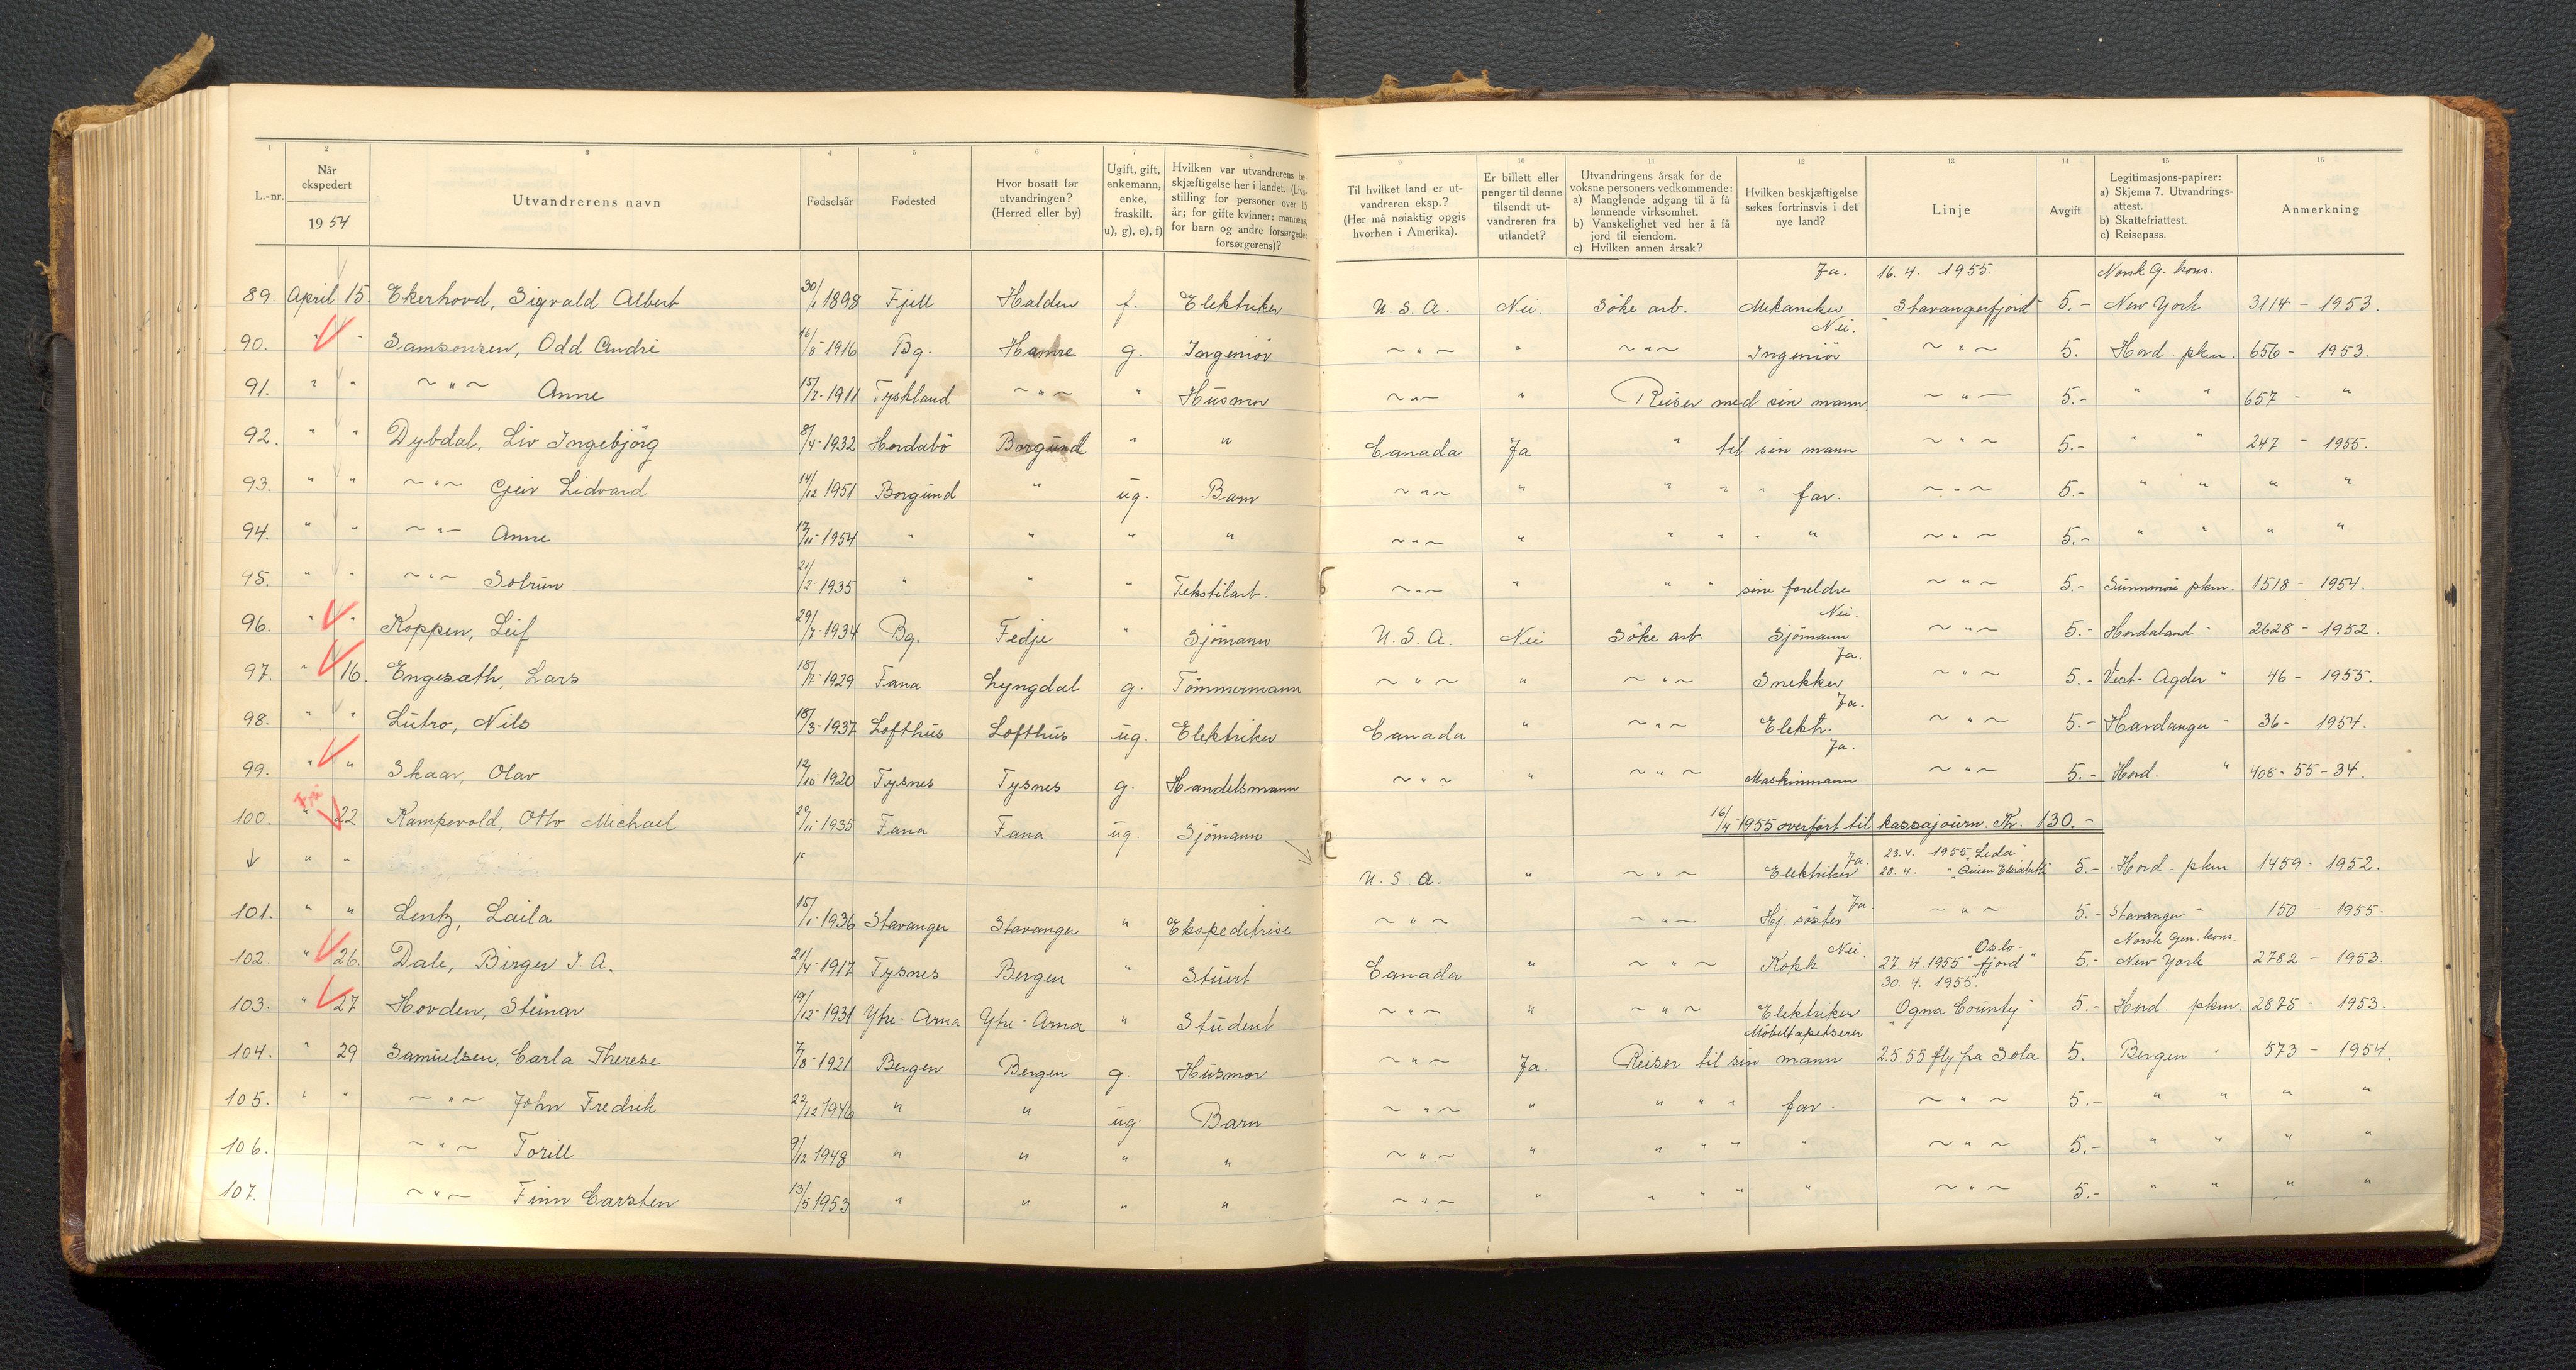 1 2 3 4 5 6 7 8 9 10 11 12 13 14 15 16
L.-nr. | Når ekspedert 1954 | Utvandrerens navn | Fødselsår | Fødested | Hvor bosatt før utvandringen? (Herred eller by) | Ugift, gift, enkemann, enke, fraskilt. u), g), e), f) | Hvilken var utvandrerens beskjæftigelse her i landet. (Livsstilling for personer over 15 år; for gifte kvinner: mannens, for barn og andre forsørgede: forsørgerens)? | Til hvilket land er utvandreren eksp.? (Her må nøiaktig opgis hvorhen i Amerika). | Er billett eller penger til denne tilsendt utvandreren fra utlandet? | Utvandringens årsak for de voksne personers vedkommende: a) Manglende adgang til å få lønnende virksomhet. b) Vanskelighet ved her å få jord til eiendom. c) Hvilken annen årsak? | Hvilken beskjæftigelse søkes fortrinsvis i det nye land? | Linje | Avgift | Legitimasjons-papirer: a) Skjema 7. Utvandringsattest. b) Skattefriattest. c) Reisepass. | Anmerkning
Ja. 16.4. 1955. Norsk G. kons.
89. April 15. Ekerhovd, Sigvald Albert 30/1 1898 Fjell Halden f. Elektriker U.S.A. Nei. Söke arb. Mekaniker "Stavangerfjord" 5.- New York 3114 - 1953.
Nei.
90. " " Samsonsen, Odd André 16/8-1916 Bg. Hamre g. Ingeniör ~"~ " ~"~ Ingeniör ~"~ 5. Hord. pkm. 656 - 1953.
91. " " ~"~ Anne 15/7-1911 Tyskland ~"~ " Husmor ~"~ " Reiser med sin mann ~"~ 5.- " " 657 - "
92. " " Dybdal, Liv Ingebjörg 8/4-1932 Hordabö Borgund " " Canada Ja " til sin mann ~"~ 5.- " " 247 - 1955.
93. " " ~"~ Geir Lidvard 14/12 1951 Borgund " ug. Barn ~"~ " " " " far. ~"~ 5.- " " " "
94. " " ~"~ Anne 17/11-1954 " " " " ~"~ " " " " " ~"~ 5.- " " " "
95. " " ~"~ Solrun 21/2-1935 " " " Tekstilarb. ~"~ " " " sine foreldre ~"~ 5.- Sunnmöre pkm. 1518 - 1954.
Nei.
96. " " Koppen, Leif 29/7-1934 Bg. Fedje " Sjömann U.S.A. Nei Söke arb. Sjömann ~"~ 5.- Hordaland " 2628 - 1952.
Ja.
97. " 16. Engesæth, Lars 18/7-1929 Fana Lyngdal g. Tömmermann ~"~ " ~"~ Snekker ~"~ 5.- Vest-Agder " 46 - 1955.
Ja.
98. " " Lutro, Nils 18/3-1937 Lofthus Lofthus ug. Elektriker Canada " ~"~ Elektr. ~"~ 5.- Hardanger " 36 - 1954.
Ja.
99. " " Skaar, Olav 12/10 1920 Tysnes Tysnes g. Handelsmann ~"~ " ~"~ Maskinmann ~"~ 5.- Hord. " 408-55-34.
100. " 22 Kampevold, Otto Michael 22/11-1935 Fana Fana ug. Sjömann
16/4-1955 overfört til kassajourn. Kr. 130.-
" " U.S.A. " ~"~ Elektriker Ja. 23.4. 1955 "Leda" 28.4. " "Queen Elisabeth" 5.- Hord. pkm. 1459 - 1952.
101. " " Lentz, Laila 15/1-1936 Stavanger Stavanger " Ekspeditrise ~"~ ~"~ Hj. söster Ja ~"~ 5.- Stavanger " 150 - 1955.
Oslo- Norsk Gen. kons.
102. " 26. Dale, Birger J. A. 21/4-1917 Tysnes Bergen " Stuert Canada " ~"~ Kokk Nei. 27.4.1955 "fjord" 5.- New York 2782 - 1953.
30.4. 1955.
103. " 27 Hovden, Steinar 19/12-1931 Ytre-Arna Ytre-Arna " Student ~"~ " ~"~ Elektriker "Ogna County" 5.- Hord. pkm. 2875 - 1953.
Möbeltapetserer
104. " 29 Samuelsen, Carla Therese 7/8-1921 Bergen Bergen g. Husmor ~"~ Ja. Reiser til sin mann 2.5.55 fly fra Sola 5. Bergen " 573 - 1954.
105. " " ~"~ John Fredrik 22/12 1946 " " ug. Barn ~"~ " " " " far. ~"~ 5.- " " " "
106. ~"~ Torill 9/12 1948 " " " " ~"~ " " " " " ~"~ 5.- " " " "
107. ~"~ Finn Carsten 13/5 1953 " " " " ~"~ " " " " " ~"~ 5.- " " " "